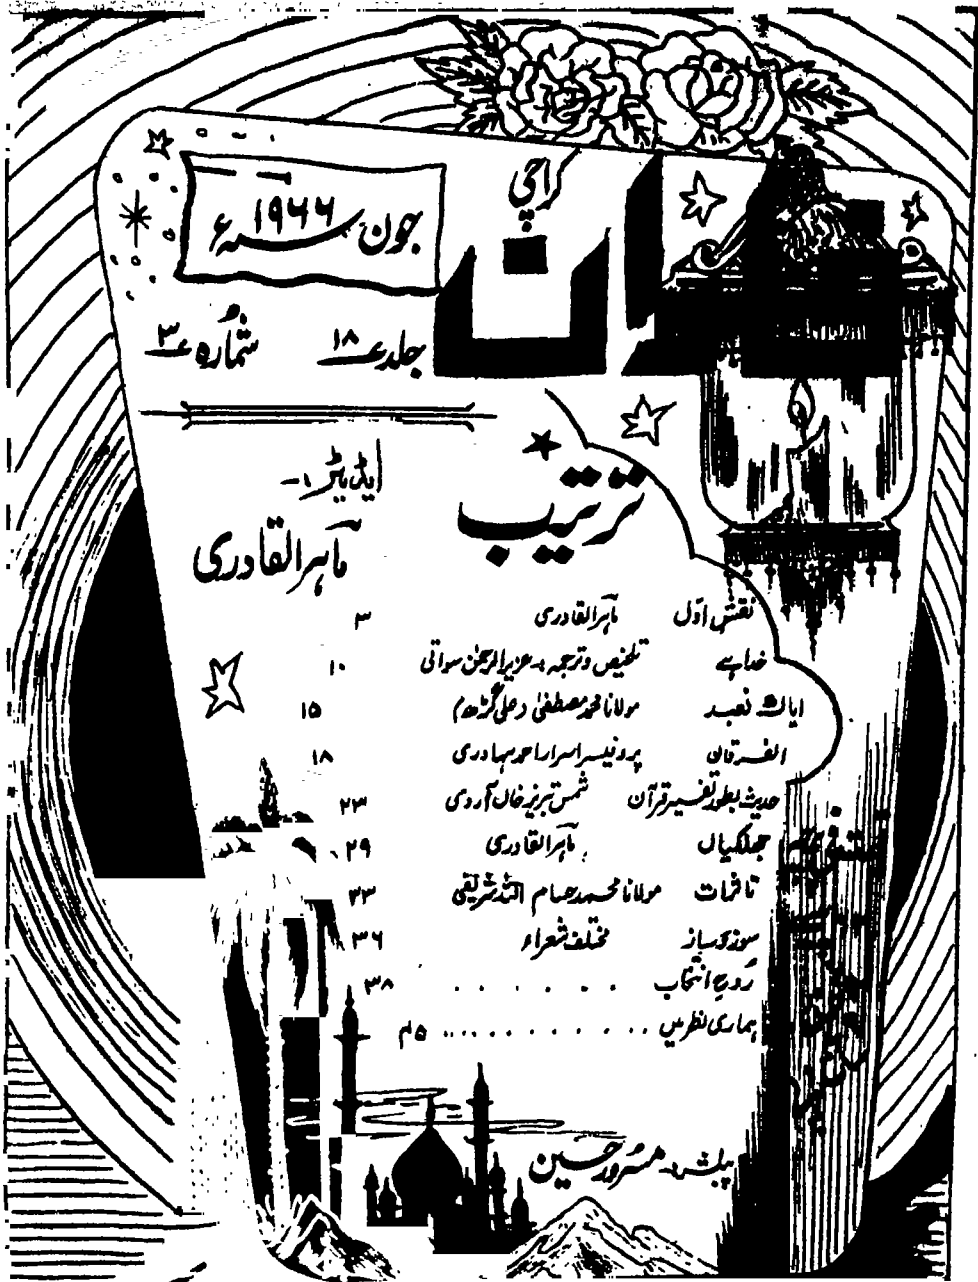 کراچی
فاران
جون ۱۹۶۶ سنہ ء
جلد ۱۸ شمارہ ۳
ترتیب
ایڈیٹر :-
ماہر القادری
نقش اوّل ماہر القادری ۳
خدا ہے تلخیص و ترجمہ :- عزیز الرحمٰن سواتی ۱۰
ایاک نعبد مولانا محمد مصطفیٰ (علی گڑھ) ۱۵
الفرقان پروفیسر اسرار احمد سہاوری ۱۸
حدیث بطور تفسیر قرآن شمس تبریز خاں آروی ۲۳
جھلکیاں ماہر القادری ۲۹
تاثرات مولانا محمد حسام اللہ شریفی ۳۳
سوز و ساز مختلف شعراء ۳۶
روحِ انتخاب . . . . . . ۳۸
ہماری نظر میں . . . . . . . . . . ۴۵
پبلشر :- مسرور حسین